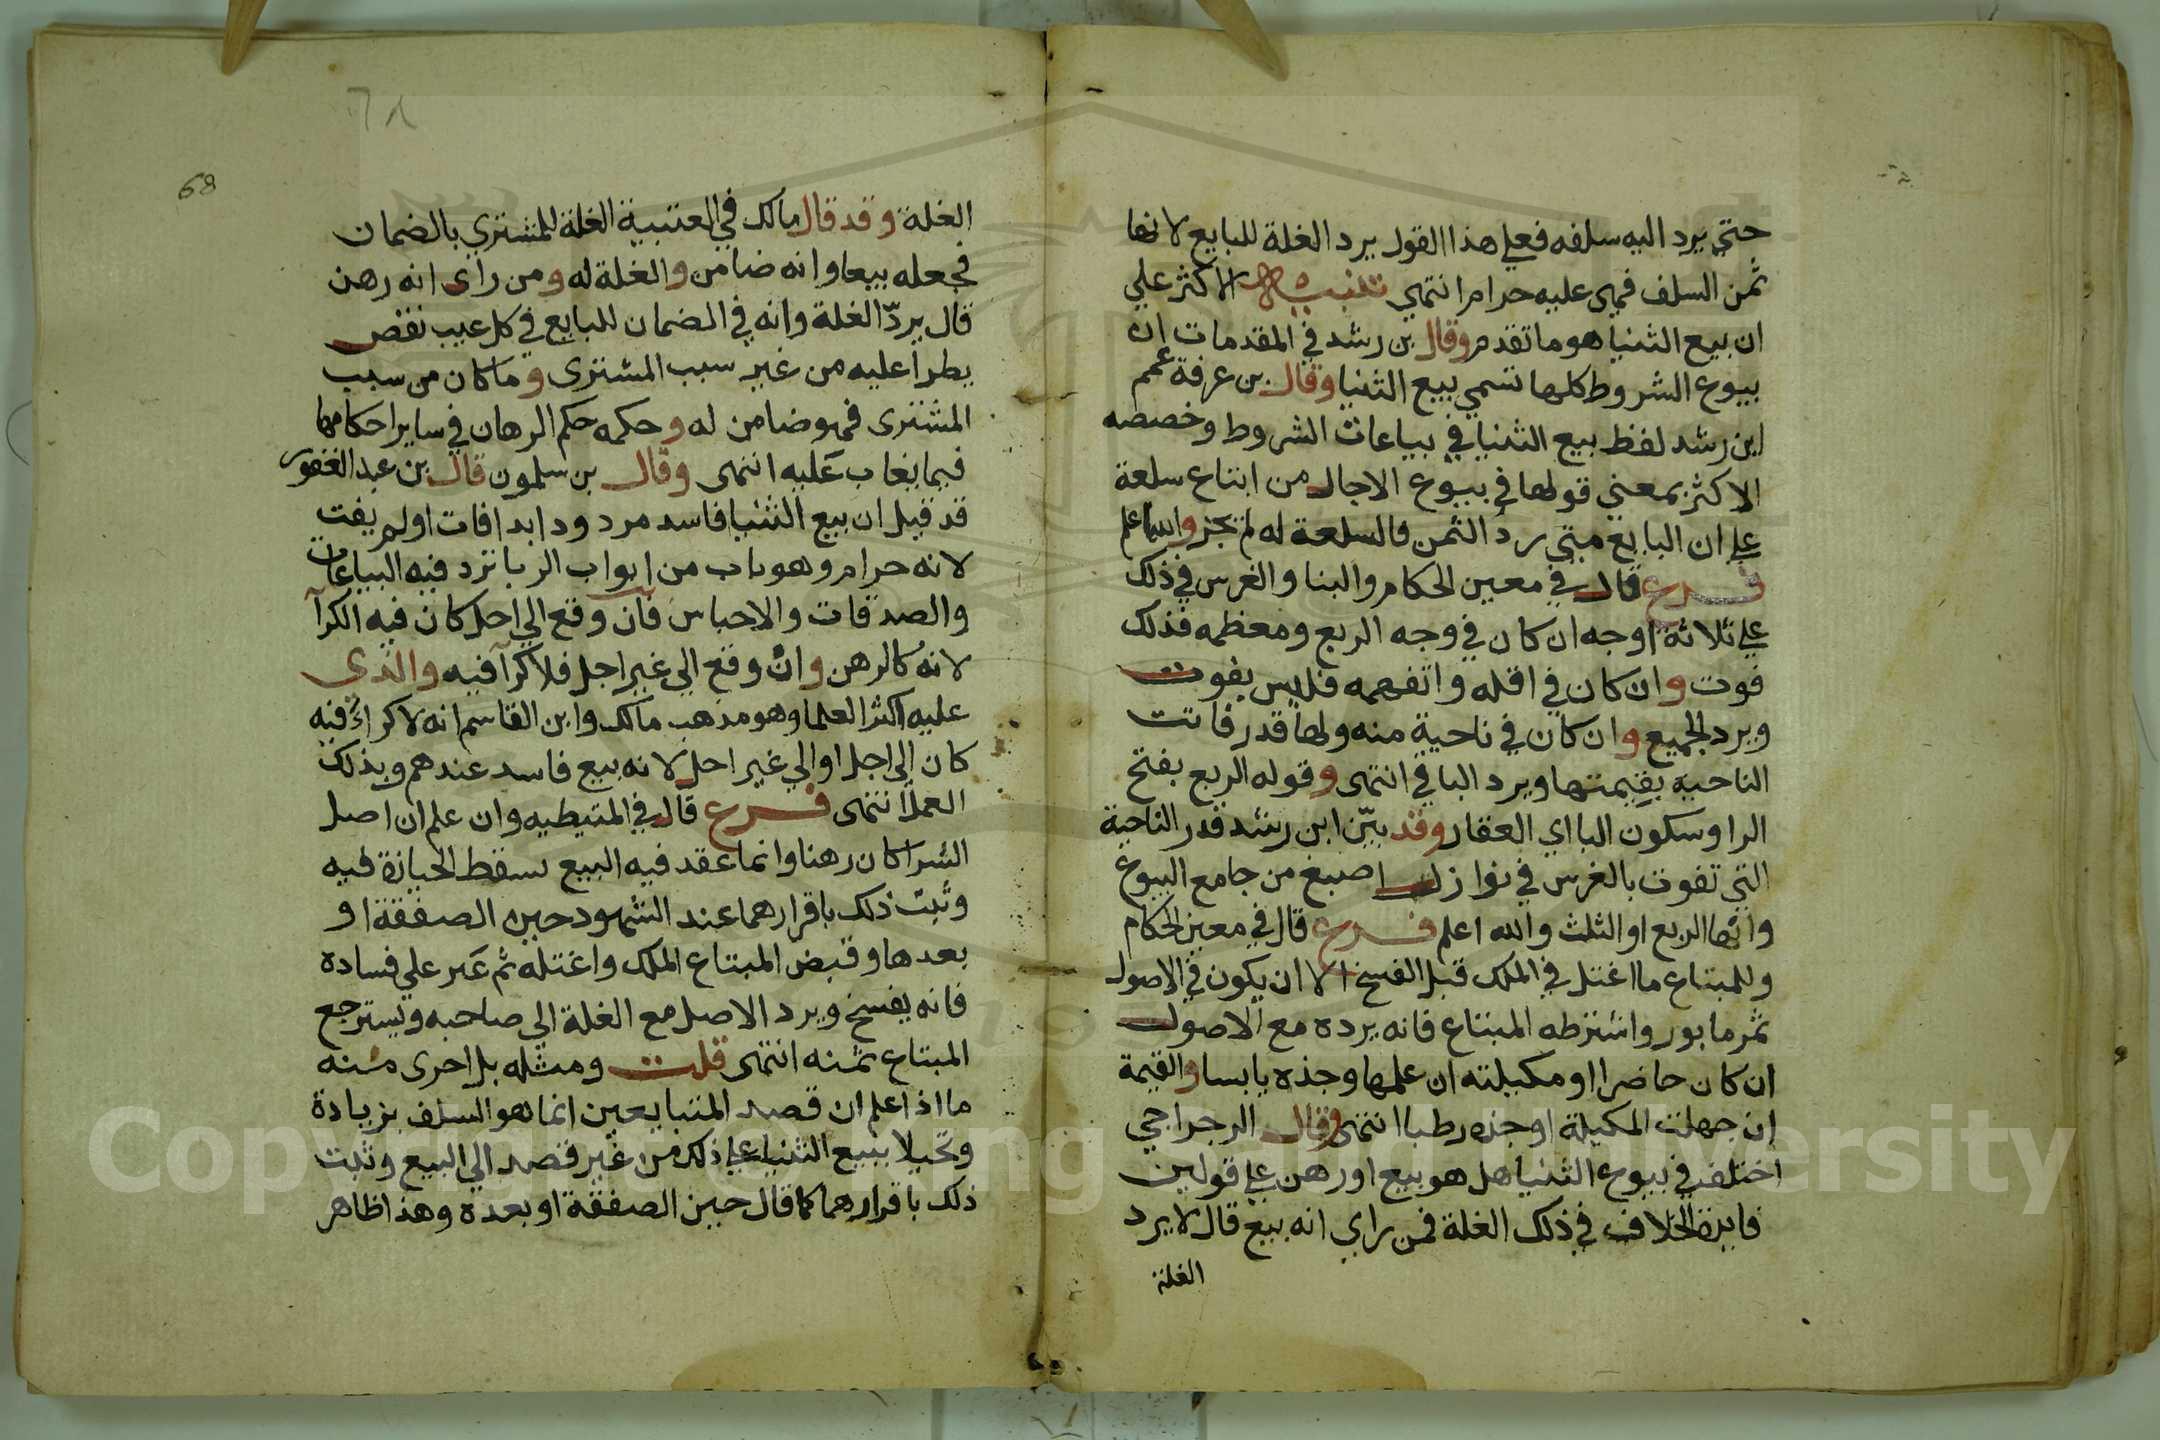 حتي يرد اليه سلفه فعلي هذا القول يرد الغلة للبايع لانها
ثمن السلف فهي عليه حرام انتهي تنبيه الاكثر علي
ان بيع الثنيا هو ما تقدم وقال بن رشد في المقدمات ان
بيوع الشروط كلها تسمي بيع الثنيا وقال بن عرفة عمم
ابن رشد لفظ بيع الثنيا في بياعات الشروط وخصصه
الاكثر بمعني قولها في بيوع الاجال من ابتاع سلعة
علي ان البايع متي رد الثمن فالسلعة له لم يجز والله اعلم
فرع قال في معين الحكام والبنا والغرس في ذلك
علي ثلاثة اوجه ان كان في وجه الربع ومعظمه فذلك
فوت وان كان في اقله واتفهمه فليس بفوت
ويرد الجميع وان كان في ناحية منه ولها قدر فاتت
الناحية بقيمتها ويرد الباقي انتهى وقوله الربع بفتح
الرا وسكون البا اي العقار وقد بيّن ابن رشد قدر الناحية
التي تفوت بالغرس في نوازل اصبغ من جامع البيوع
وانها الربع او الثلث والله اعلم فرع قال في معين الحكام
وللمبتاع ما اغتل في الملك قبل الفسخ الا ان يكون في الاصول
ثمر مابور واشترطه المبتاع فانه يرده مع الاصول
ان كان حاضرا او مكيلته ان علمها وجذه يابسا والقيمة
ان جهلت المكيلة او جذه رطبا انتهى وقال الرجراجي
اختلف في بيوع الثنيا هل هو بيع او رهن علي قولين
فايدة الخلاف في ذلك الغلة فمن راي انه بيع قال لا يرد
الغلة
68
الغلة وقد قال مالك في العتبية الغلة للمشتري بالضمان
فجعله بيعا وانه ضامن والغلة له ومن راى انه رهن
قال يردّ الغلة وانه في الضمان للبايع في كل عيب نقص
يطرا عليه من غير سبب المشترى وما كان من سبب
المشترى فهو ضامن له وحكمه حكم الرهان في ساير احكامها
فيما يغاب عليه انتهى وقال بن سلمون قال بن عبد الغفور
قد قيل ان بيع الثنيا فاسد مردود ابدا فات او لم يفت
لانه حرام وهو باب من ابواب الربا ترد فيه البياعات
والصدقات والاحباس فان وقع الي اجل كان فيه الكرآ
لانه كالرهن وان وقع الي غير اجل فلا كرآ فيه والذى
عليه اكثر العلما وهو مذهب مالك وابن القاسم انه لا كراء فيه
كان الي اجل او الي غير اجل لانه بيع فاسد عندهم وبذلك
العمل انتهى فرع قال في المتيطيه وان علم ان اصل
الشرا كان رهنا وانما عقد فيه البيع لسقط الحيازة فيه
وثبت ذلك باقرارهما عند الشهود حين الصفقة او
بعدها وقبض المبتاع الملك واغتله ثم عثر علي فساده
فانه يفسخ ويرد الاصل مع الغلة الى صاحبه ويسترجع
المبتاع ثمنه انتهى قلت ومثله بل احرى منه
ما اذا علم ان قصد المتبايعين انما هو السلف بزيادة
وتحيلا ببيع الثنيا علي ذلك من غير قصد الي البيع وثبت
ذلك باقرارهما كما قال حين الصفقة او بعده وهذا ظاهر
Copyright © King Saud University